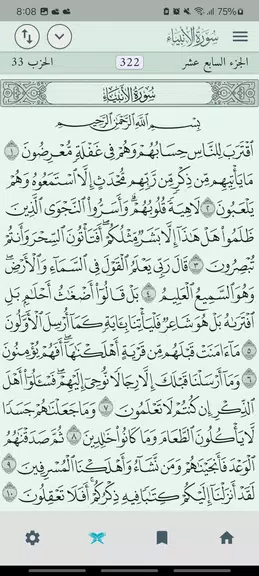 8:08 75%
سُورَةُ الأَنبِيَاءِ
الجزء السابع عشر 322 الحزب 33
سُورَةُ الأَنبِيَاءِ
بِسْمِ اللَّهِ الرَّحْمَٰنِ الرَّحِيمِ
ٱقْتَرَبَ لِلنَّاسِ حِسَابُهُمْ وَهُمْ فِى غَفْلَةٍ مُّعْرِضُونَ ١
مَا يَأْتِيهِم مِّن ذِكْرٍ مِّن رَّبِّهِم مُّحْدَثٍ إِلَّا ٱسْتَمَعُوهُ وَهُمْ
يَلْعَبُونَ ٢ لَاهِيَةً قُلُوبُهُمْ وَأَسَرُّوا۟ ٱلنَّجْوَى ٱلَّذِينَ
ظَلَمُوا۟ هَلْ هَٰذَآ إِلَّا بَشَرٌ مِّثْلُكُمْ أَفَتَأْتُونَ ٱلسِّحْرَ وَأَنتُمْ
تُبْصِرُونَ ٣ قَالَ رَبِّى يَعْلَمُ ٱلْقَوْلَ فِى ٱلسَّمَآءِ وَٱلْأَرْضِ
وَهُوَ ٱلسَّمِيعُ ٱلْعَلِيمُ ٤ بَلْ قَالُوٓا۟ أَضْغَٰثُ أَحْلَٰمٍۭ بَلِ
ٱفْتَرَىٰهُ بَلْ هُوَ شَاعِرٌ فَلْيَأْتِنَا بِـَٔايَةٍ كَمَآ أُرْسِلَ ٱلْأَوَّلُونَ
٥ مَآ ءَامَنَتْ قَبْلَهُم مِّن قَرْيَةٍ أَهْلَكْنَٰهَآ أَفَهُمْ يُؤْمِنُونَ
٦ وَمَآ أَرْسَلْنَا قَبْلَكَ إِلَّا رِجَالًا نُّوحِىٓ إِلَيْهِمْ فَسْـَٔلُوٓا۟ أَهْلَ
ٱلذِّكْرِ إِن كُنتُمْ لَا تَعْلَمُونَ ٧ وَمَا جَعَلْنَٰهُمْ جَسَدًا
لَّا يَأْكُلُونَ ٱلطَّعَامَ وَمَا كَانُوا۟ خَٰلِدِينَ ٨ ثُمَّ صَدَقْنَٰهُمُ
ٱلْوَعْدَ فَأَنجَيْنَٰهُمْ وَمَن نَّشَآءُ وَأَهْلَكْنَا ٱلْمُسْرِفِينَ ٩
لَقَدْ أَنزَلْنَآ إِلَيْكُمْ كِتَٰبًا فِيهِ ذِكْرُكُمْ أَفَلَا تَعْقِلُونَ ١٠